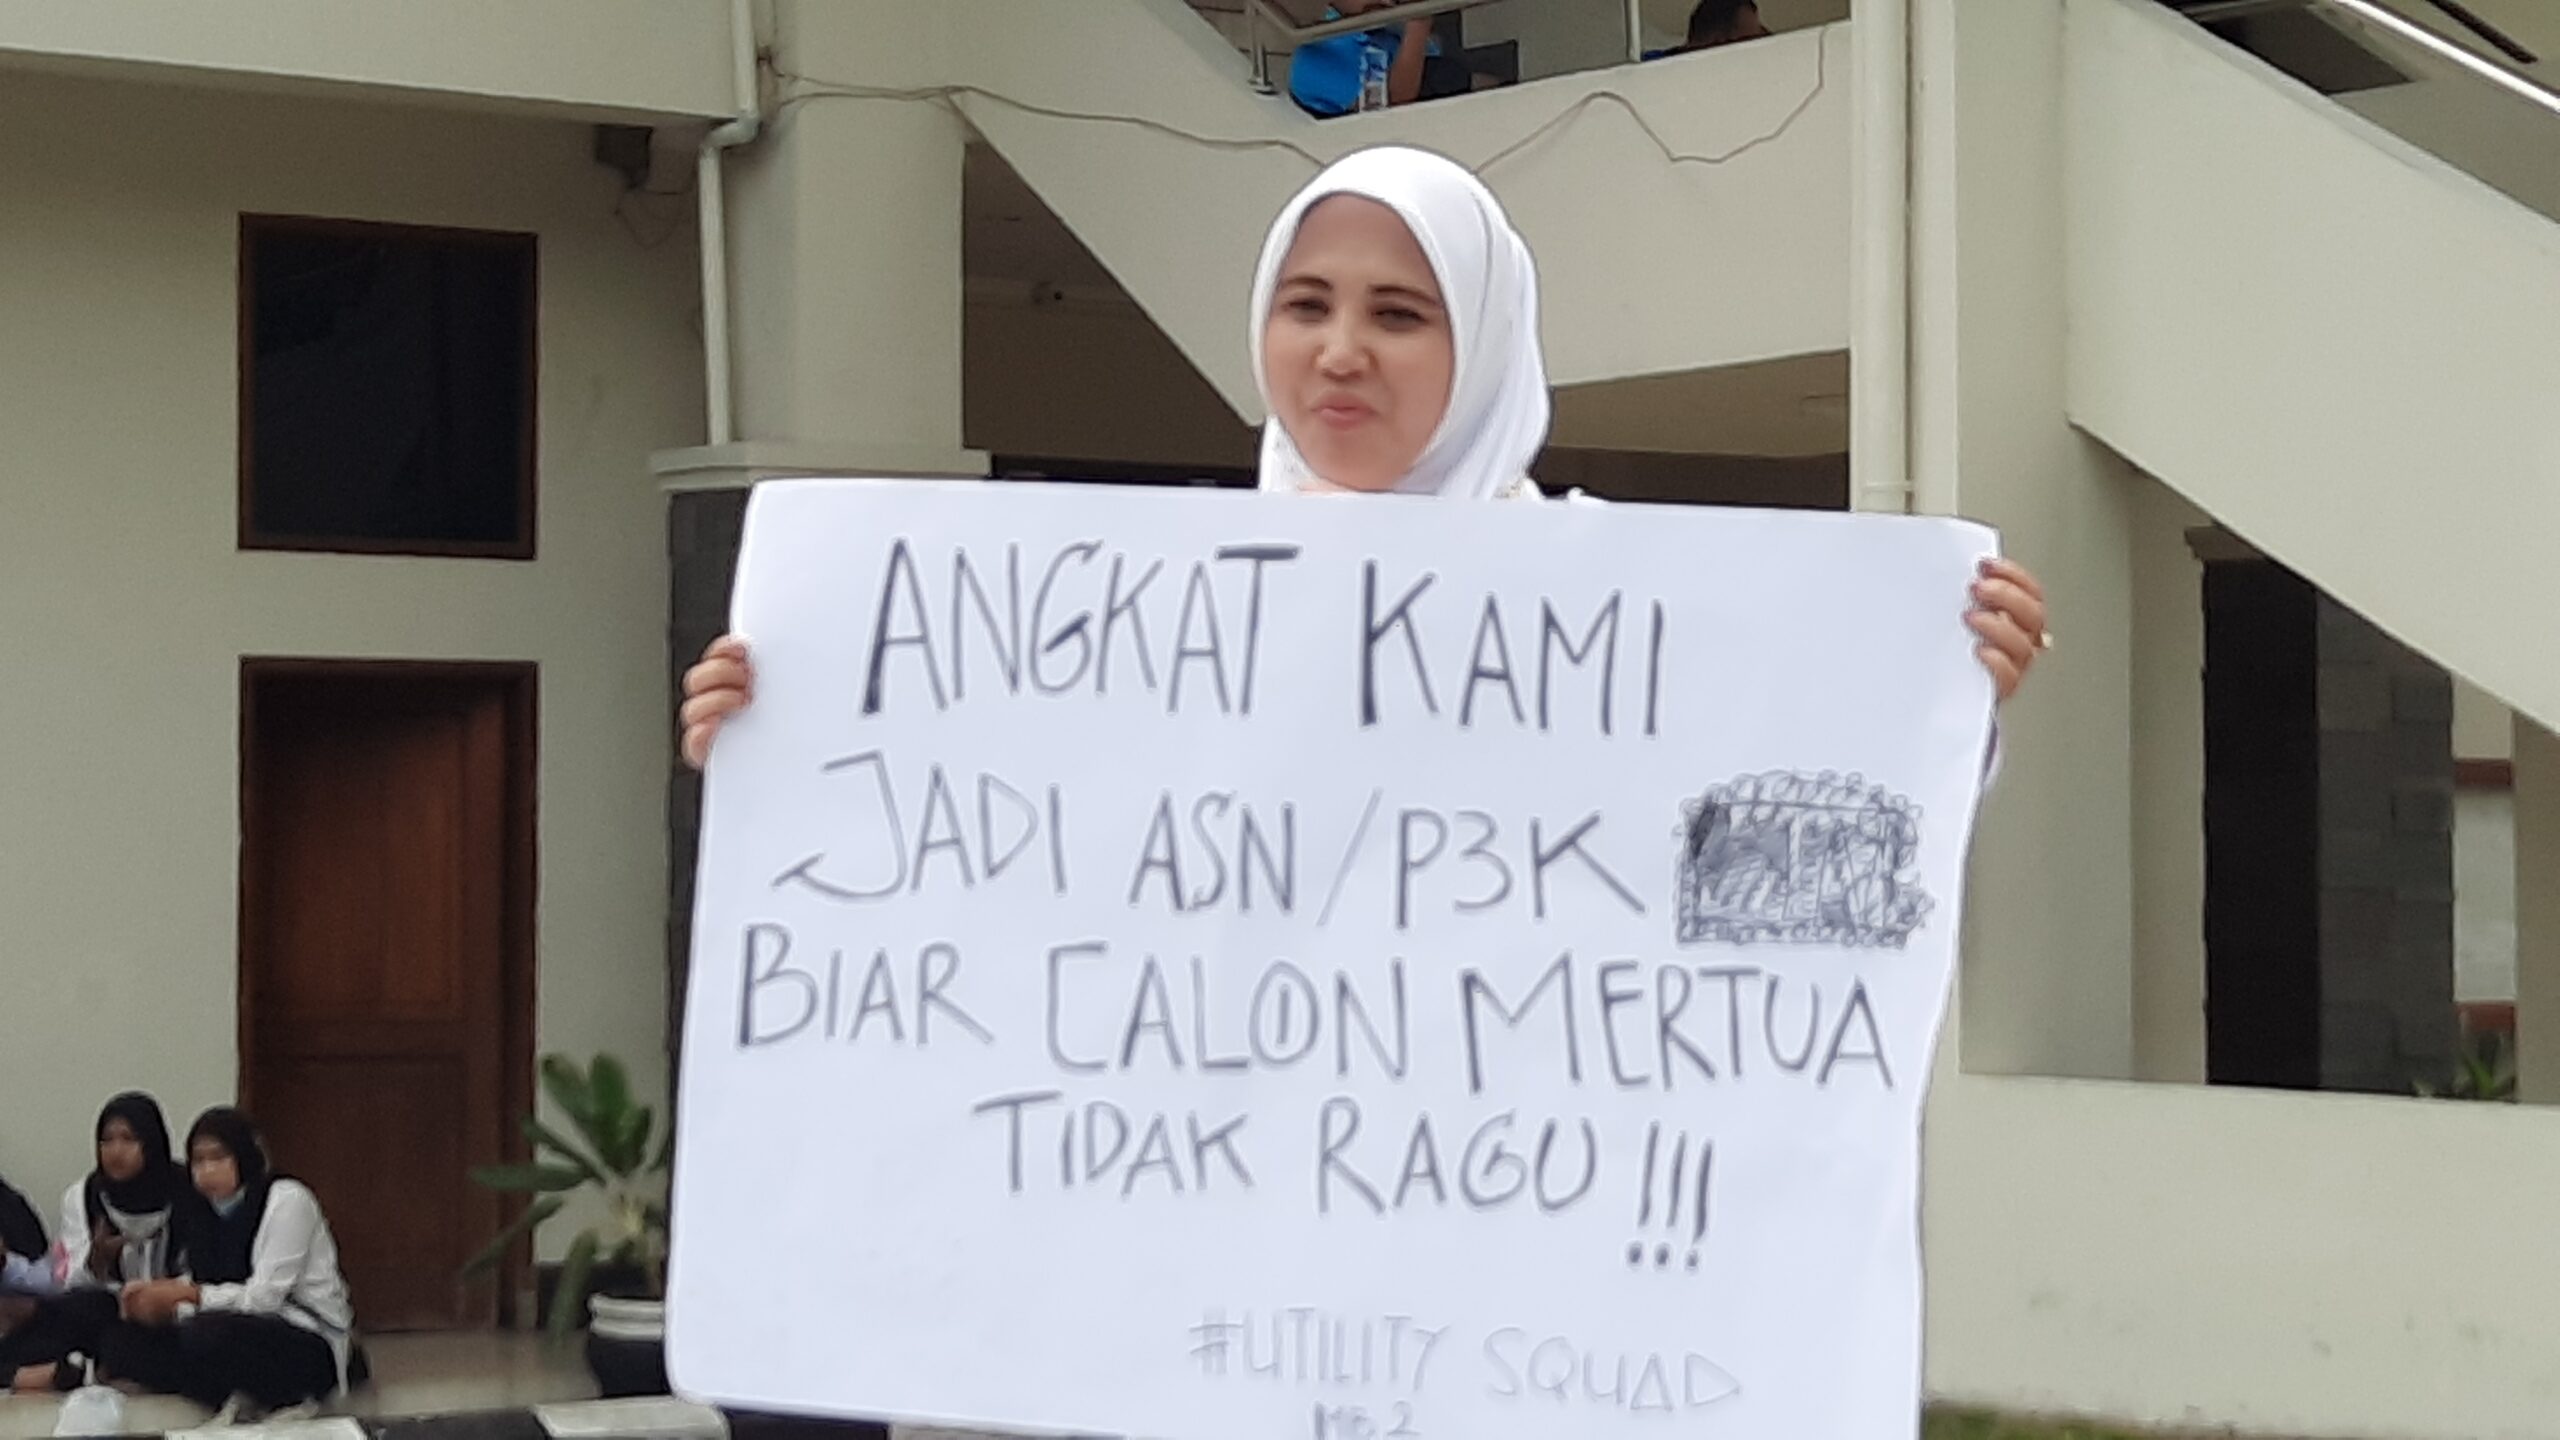 ANGKAT KAMI
JADI ASN/P3K
BIAR CALON MERTUA
TIDAK RAGU !!!
#UTILITY SQUAD